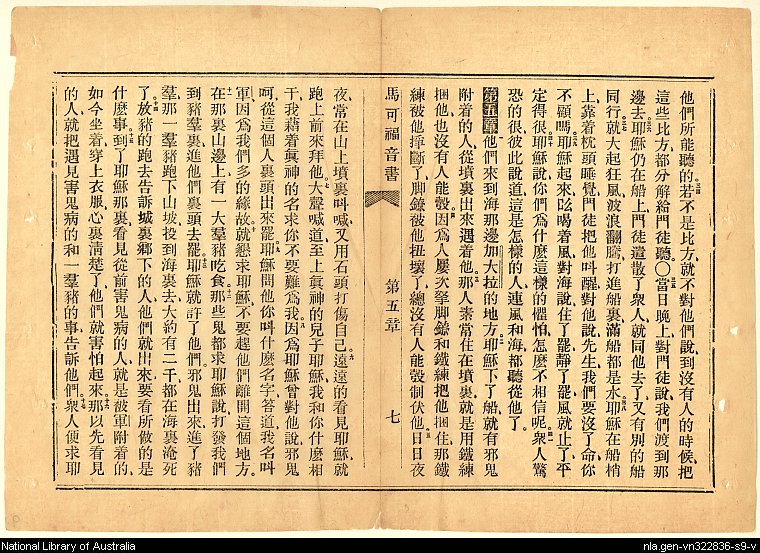 他們所能聽的若不是比方就不對他們說到沒有人的時候把
這些比方都分解給門徒聽〇當日晚上對門徒說我們渡到那
邊去耶穌仍在船上門徒遣散了衆人就同他去了又有別的船
同行就大起狂風波浪翻騰打進船裏滿船都是水耶穌在船梢
上靠着枕頭睡覺門徒把他叫醒對他說先生我們要沒了命你
不顧嗎耶穌起來吆喝着風對海說住了罷靜了罷風就止了平
定得很耶穌說你們爲什麽這樣的懼怕怎麽不相信呢衆人驚
恐的很彼此說道這是怎樣的人連風和海都聽從他了
第五章他們來到海那邊加大拉的地方耶穌下了船就有邪鬼
附着的人從墳裏出來遇着他那人素常住在墳裏就是用鐵練
捆他也沒有人能彀因爲人屢次拏脚鐐和鐵練把他捆住那鐵
練被他掙斷了脚鐐被他扭壞了總沒有人能彀制伏他日日夜
馬可福音書 第五章 七
夜常在山上墳裏叫喊又用石頭打傷自己遠遠的看見耶穌就
跑上前來拜他大聲喊道至上眞神的兒子耶穌我和你什麽相
干我藉着眞神的名求你不要難爲我因爲耶穌曾對他說邪鬼
呵從這個人裏頭出來罷耶穌問他你叫什麽名字答道我名叫
軍因爲我們多的緣故就懇求耶穌不要趕他們離開這個地方
在那裏山邊上有一大羣豬吃食那些鬼都求耶穌說打發我們
到豬羣裏進他們裏頭去罷耶穌就許了他們邪鬼出來進了豬
羣那一羣豬跑下山坡投到海裏去大約有二千都在海裏淹死
了放豬的跑去告訴城裏鄕下的人他們就出來要看所做的是
什麽事到了耶穌那裏看見從前害鬼病的人就是被軍附着的
如今坐着穿上衣服心裏清楚了他們就害怕起來那以先看見
的人就把遇見害鬼病的和一羣豬的事告訴他們衆人便求耶
National Library of Australia
nla.gen-vn322836-s9-v